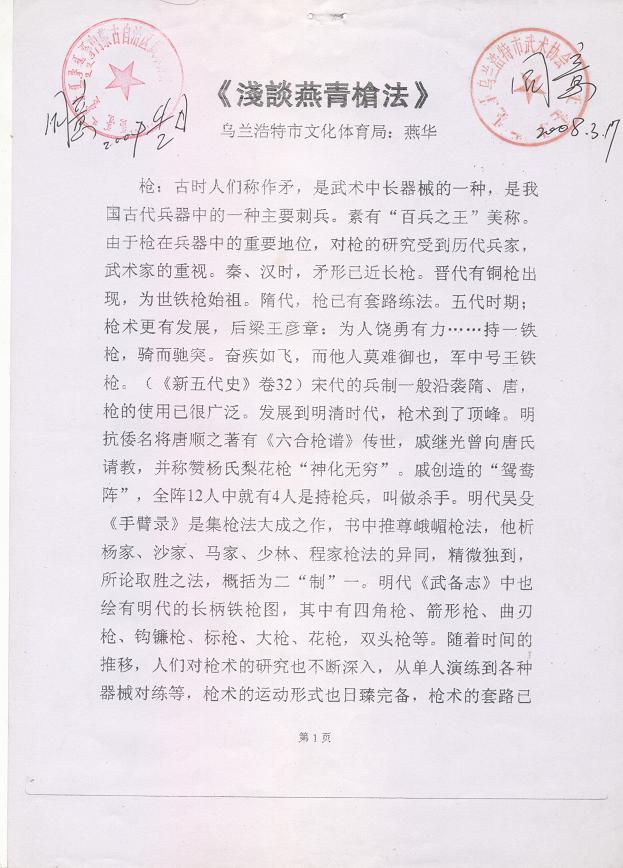 内蒙古自治区
乌兰浩特市武术协会
同意
2008.3.17
同意
《淺談燕青槍法》
乌兰浩特市文化体育局：燕华
枪：古时人们称作矛，是武术中长器械的一种，是我
国古代兵器中的一种主要刺兵。素有“百兵之王”美称。
由于枪在兵器中的重要地位，对枪的研究受到历代兵家，
武术家的重视。秦、汉时，矛形已近长枪。晋代有铜枪出
现，为世铁枪始祖。隋代，枪已有套路练法。五代时期；
枪术更有发展，后梁王彦章：为人饶勇有力……持一铁
枪，骑而驰突。奋疾如飞，而他人莫难御也，军中号王铁
枪。（《新五代史》卷32）宋代的兵制一般沿袭隋、唐，
枪的使用已很广泛。发展到明清时代，枪术到了顶峰。明
抗倭名将唐顺之著有《六合枪谱》传世，戚继光曾向唐氏
请教，并称赞杨氏梨花枪“神化无穷”。戚创造的“鸳鸯
阵”，全阵12人中就有4人是持枪兵，叫做杀手。明代吴殳
《手臂录》是集枪法大成之作，书中推尊峨嵋枪法，他析
杨家、沙家、马家、少林、程家枪法的异同，精微独到，
所论取胜之法，概括为二“制”一。明代《武备志》中也
绘有明代的长柄铁枪图，其中有四角枪、箭形枪、曲刃
枪、钩镰枪、标枪、大枪、花枪，双头枪等。随着时间的
推移，人们对枪术的研究也不断深入，从单人演练到各种
器械对练等，枪术的运动形式也日臻完备，枪术的套路已
第1页